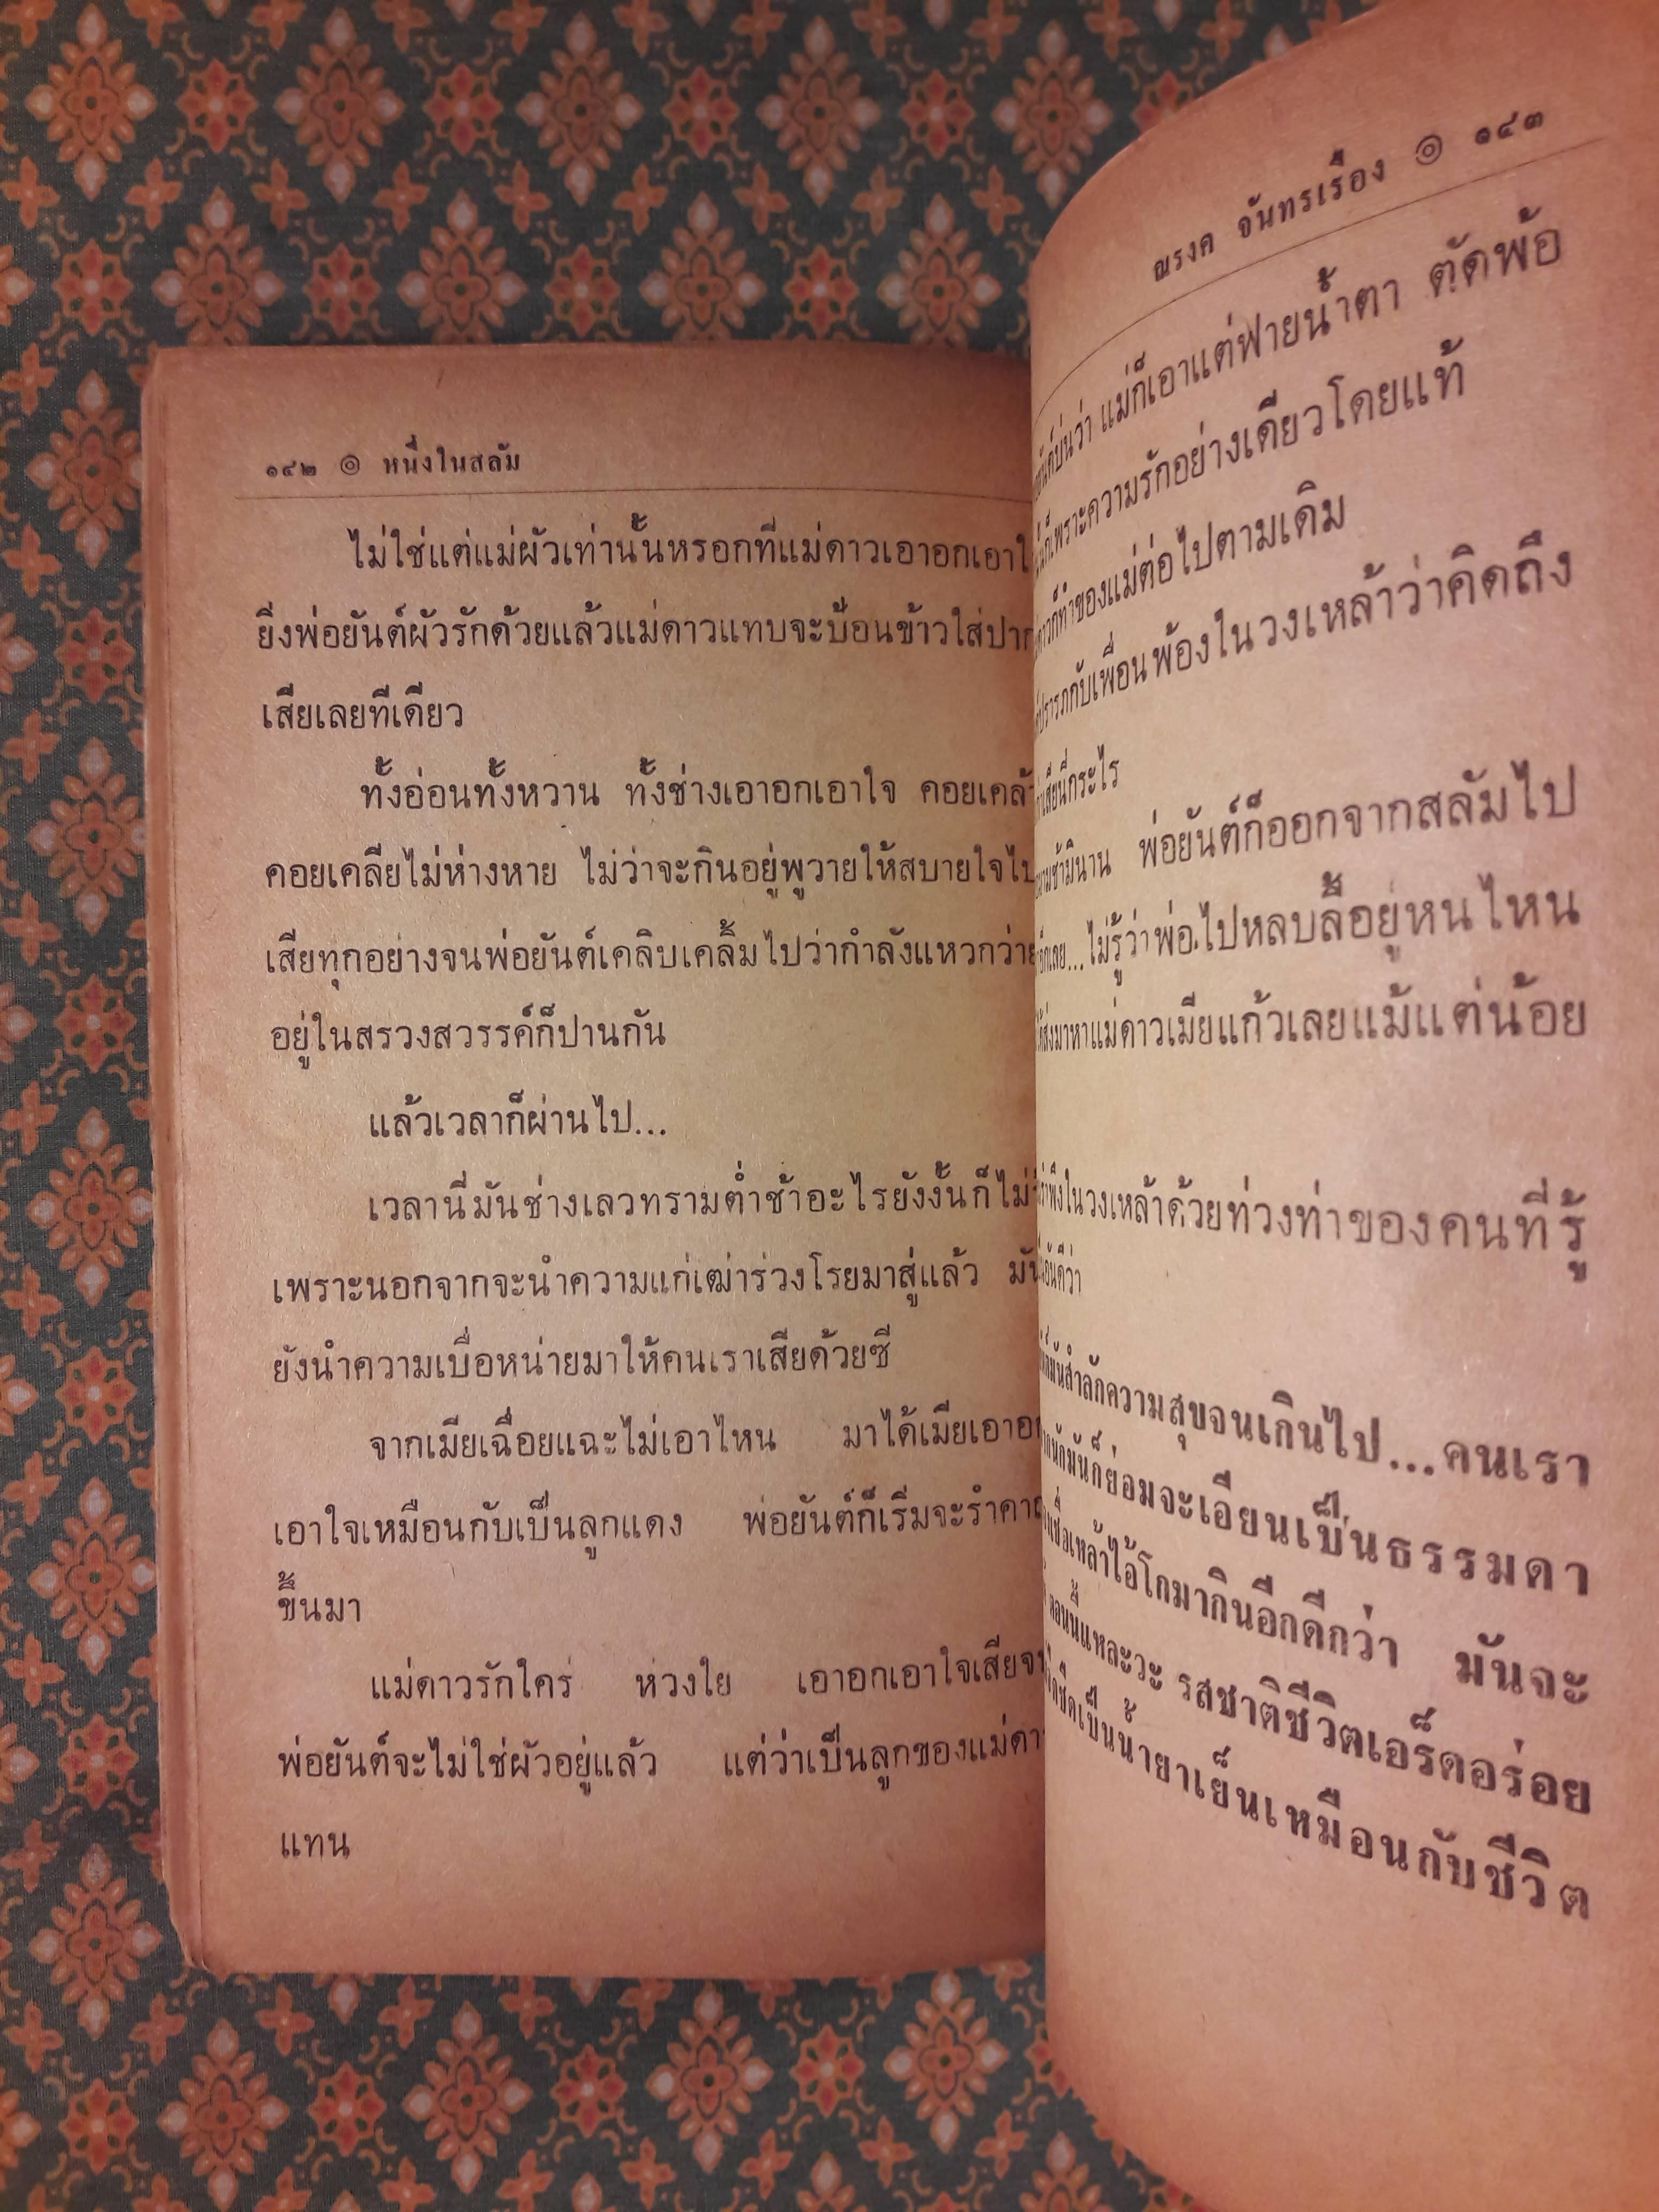 ๑๔๒ ๏ หนึ่งในสลัม
ไม่ใช่แต่แม่ผัวเท่านั้นหรอกที่แม่ดาวเอาอกเอา
ยิ่งพ่อยันต์ผัวรักด้วยแล้วแม่ดาวแทบจะป้อนข้าวใส่ปาก
เสียเลยทีเดียว
ทั้งอ่อนทั้งหวาน ทั้งช่างเอาอกเอาใจ คอยเคล้า
คอยเคลียไม่ห่างหาย ไม่ว่าจะกินอยู่พูวายให้สบายใจไป
เสียทุกอย่างจนพ่อยันต์เคลิบเคลิ้มไปว่ากำลังแหวกว่าย
อยู่ในสรวงสวรรค์ก็ปานกัน
แล้วเวลาก็ผ่านไป...
เวลานี่มันช่างเลวทรามต่ำช้าอะไรยังงั้นก็ไม่
เพราะนอกจากจะนำความแก่เฒ่าร่วงโรยมาสู่แล้ว มัน
ยังนำความเบื่อหน่ายมาให้คนเราเสียด้วยซี
จากเมียเฉื่อยแฉะไม่เอาไหน มาได้เมียเอาอก
เอาใจเหมือนกับเป็นลูกแดง พ่อยันต์ก็เริ่มจะรำคาญ
ขึ้นมา
แม่ดาวรักใคร่ ห่วงใย เอาอกเอาใจเสียจน
พ่อยันต์จะไม่ใช่ผัวอยู่แล้ว แต่ว่าเป็นลูกของแม่ดาว
แทน
ณรงค์ จันทร์เรือง ๏ ๑๔๓
บ่นว่า แม่ก็เอาแต่ฟายน้ำตา ตัดพ้อ
เพราะความรักอย่างเดียวโดยแท้
ก็ทำของแม่ต่อไปตามเดิม
ปรารภกับเพื่อนพ้องในวงเหล้าว่าคิดถึง
เสียนี่กระไร
ช้ามินาน พ่อยันต์ก็ออกจากสลัมไป
ไม่รู้ว่าพ่อไปหลบลี้อยู่หนไหน
ส่งมาหาแม่ดาวเมียแก้วเลยแม้แต่น้อย
ในวงเหล้าด้วยท่วงท่าของคนที่รู้
ดีว่า
มันสำลักความสุขจนเกินไป...คนเรา
มันก็ย่อมจะเอียนเป็นธรรมดา
เหล้าไอ้โกมากินอีกดีกว่า มันจะ
ตอนนี้แหละวะ รสชาติชีวิตเอร็ดอร่อย
ชืดเป็นน้ำยาเย็นเหมือนกับชีวิต